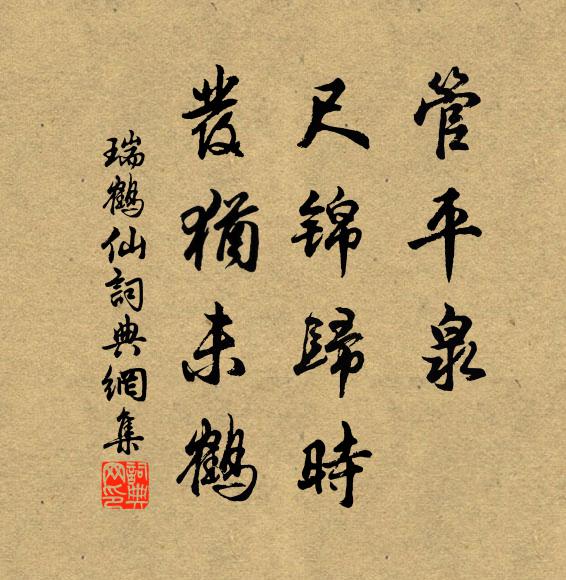 管平泉
尺锦歸時
发猶未鶴
瑞鶴仙詞典網集
詞典网印